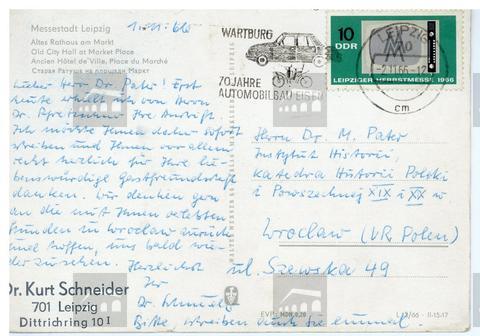 Messestadt Leipzig
1.11.66
Altes Rathaus am Markt
Old City Hall at Market Place
Ancien Hôtel de Ville, Place du Marché
Старая Ратуша на площади Маркт
Lieber Herr Dr. Pater! Erst
heute erhielt ich von Herrn
Dr. Ihre Anschrift.
Ich möchte Ihnen daher sofort
schreiben und Ihnen vor allem
recht herzlich für Ihre lie-
benswürdige Gastfreundschaft
danken. Wir denken gern
an die mit Ihnen verlebten
Stunden in Wroclaw zurück
und hoffen, uns bald wie-
der zu sehen. Herzlichst
Ihr
Dr. Schneider
Bitte schreiben auch Sie einmal.
Dr. Kurt Schneider
701 Leipzig
Dittrichring 10 I
WARTBURG
70 JAHRE
AUTOMOBILBAU EISEN
10
DDR
LEIPZIGER HERBSTMESSE 1966
LEIPZIG
-2.11.66-12
cm
Herrn Dr. M. Pater
Instytut Historii,
Katedra Historii Polski
i Powszechnej XIX i XX w
Wrocław (VR. Polen)
ul. Szewska 49